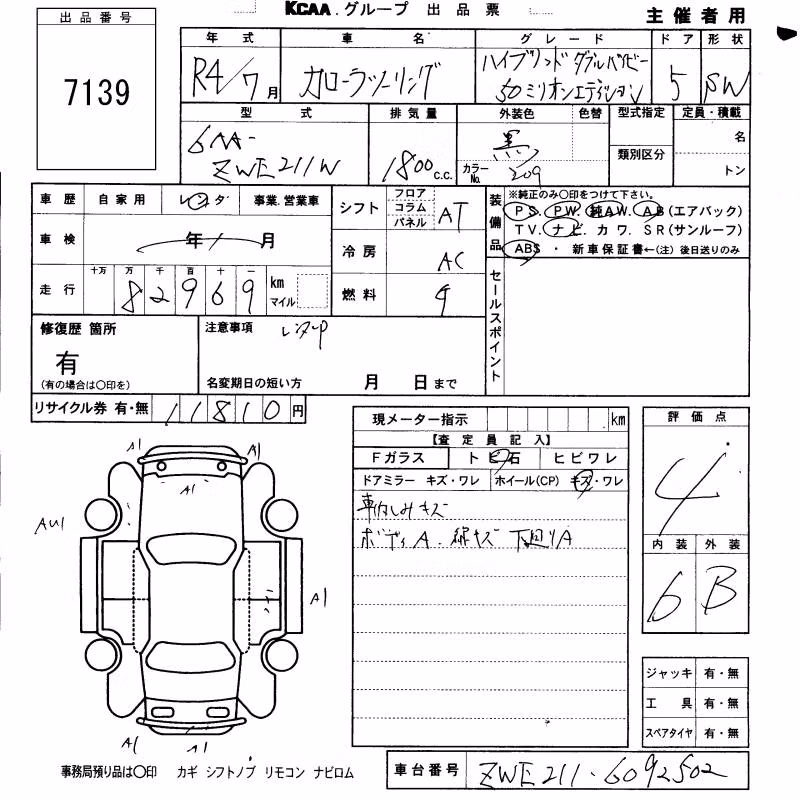 KCAA.グループ 出品票 主催者用
出品番号 7139
年式 車名 グレード ドア 形状
R4/7月 カローラツーリング ハイブリッド ダブルバイビー 50ミリオンエディション 5 SW
型式 排気量 外装色 色替 型式指定 定員・積載
6AA-ZWE211W 1800c.c. 黒 カラーNo. 209 類別区分 名 トン
車歴 自家用 レンタ 事業.営業車 シフト フロア コラム パネル AT
車検 年 / 月 冷房 AC
走行 十万 万 千 百 十 一 82969 km マイル 燃料
装備品 ※純正のみ○印をつけて下さい。
PS. PW. 純AW. AB(エアバック)
TV. ナビ. カワ. SR(サンルーフ)
ABS ・ 新車保証書←(注)後日送りのみ
セールスポイント
修復歴 箇所 有 (有の場合は○印を)
注意事項 レンタUP
名変期日の短い方 月 日まで
リサイクル券 有・無 11810円
現メーター指示 km
【査定員記入】
Fガラス トビ石 ヒビワレ
ドアミラー キズ・ワレ ホイール(CP) キズ・ワレ
車内しみキズ
ボディA. 線キズ 下回りA
評価点 4
内装 外装
6 B
ジャッキ 有・無
工具 有・無
スペアタイヤ 有・無
A1 A1
A1
AU1
A1
A1 A1
事務局預り品は○印 カギ シフトノブ リモコン ナビロム
車台番号 ZWE211-6092502